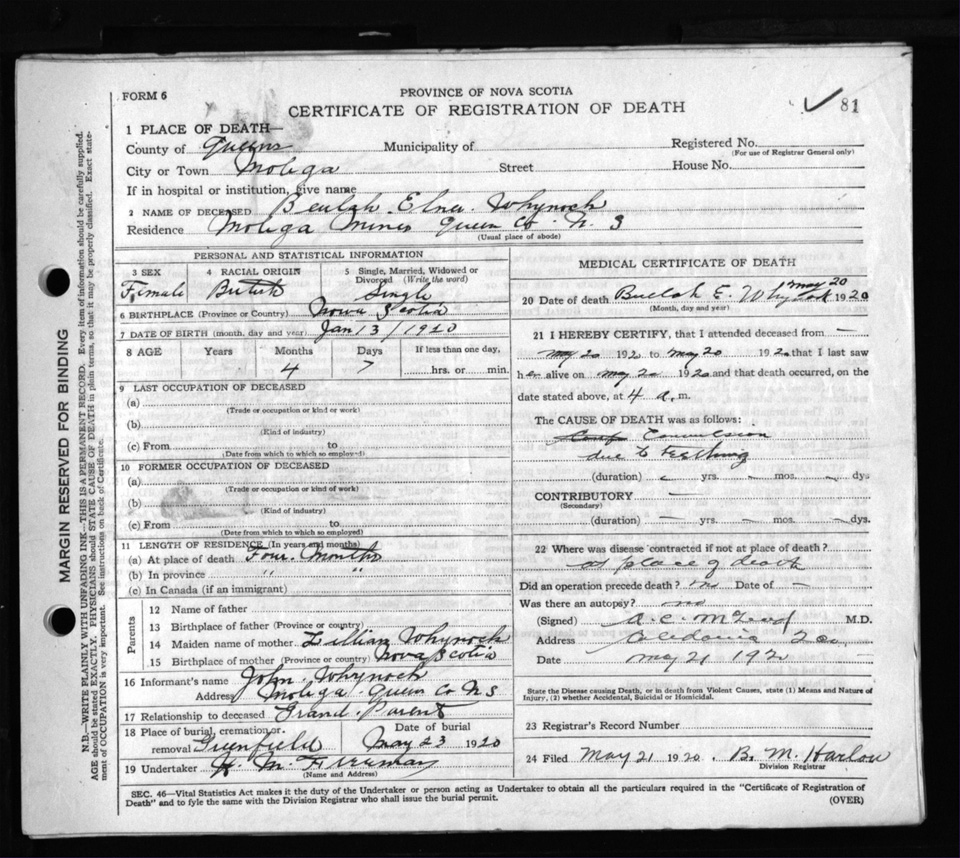 FORM 6
PROVINCE OF NOVA SCOTIA
CERTIFICATE OF REGISTRATION OF DEATH
81
1 PLACE OF DEATH—
County of Queens Municipality of Registered No.
(For use of Registrar General only)
City or Town Molega Street House No.
If in hospital or institution, give name
2 NAME OF DECEASED Beulah Elna Whynoch
Residence Molega Mines Queen Co N. S
(Usual place of abode)
PERSONAL AND STATISTICAL INFORMATION
3 SEX 4 RACIAL ORIGIN 5 Single, Married, Widowed or Divorced (Write the word)
Female British Single
6 BIRTHPLACE (Province or Country) Nova Scotia
7 DATE OF BIRTH (month, day and year) Jan 13 / 1920
8 AGE Years Months Days If less than one day,
4 7 hrs. or min.
9 LAST OCCUPATION OF DECEASED
(a)
(Trade or occupation or kind or work)
(b)
(Kind of industry)
(c) From to
(Date from which to which so employed)
10 FORMER OCCUPATION OF DECEASED
(a)
(Trade or occupation or kind or work)
(b)
(Kind of industry)
(c) From to
(Date from which to which so employed)
11 LENGTH OF RESIDENCE (In years and months)
(a) At place of death Four Months
(b) In province " "
(c) In Canada (if an immigrant)
Parents
12 Name of father
13 Birthplace of father (Province or country)
14 Maiden name of mother Lillian Whynoch
15 Birthplace of mother (Province or country) Nova Scotia
16 Informant's name John Whynoch
Address Molega Queen Co N S
17 Relationship to deceased Grand Parent
18 Place of burial, cremation or removal Greenfield Date of burial May 23 1920
19 Undertaker H. M. Freeman
(Name and Address)
MEDICAL CERTIFICATE OF DEATH
20 Date of death Buelah E. Whynock May 20 1920
(Month, day and year)
21 I HEREBY CERTIFY, that I attended deceased from —
May 20 1920 to May 20 1920 that I last saw
her alive on May 20 1920 and that death occurred, on the
date stated above, at 4 a.m.
The CAUSE OF DEATH was as follows:
Convulsion
due to teething
(duration) — yrs. — mos. — dys
CONTRIBUTORY —
(Secondary)
(duration) — yrs. — mos. — dys.
22 Where was disease contracted if not at place of death?
at place of death
Did an operation precede death? no Date of —
Was there an autopsy? no
(Signed) A. C. McLeod M.D.
Address Caledonia
Date May 21 1920
State the Disease causing Death, or in death from Violent Causes, state (1) Means and Nature of
Injury, (2) whether Accidental, Suicidal or Homicidal.
23 Registrar's Record Number
24 Filed May 21 1920. B. M. Harlow
Division Registrar
SEC. 46—Vital Statistics Act makes it the duty of the Undertaker or person acting as Undertaker to obtain all the particulars required in the "Certificate of Registration of
Death" and to fyle the same with the Division Registrar who shall issue the burial permit.
(OVER)
MARGIN RESERVED FOR BINDING
N.B.—WRITE PLAINLY WITH UNFADING INK—THIS IS A PERMANENT RECORD. Every item of information should be carefully supplied.
AGE should be stated EXACTLY. PHYSICIANS should STATE CAUSE OF DEATH in plain terms, so that it may be properly classified. Exact state-
ment of OCCUPATION is very important. See instructions on back of Certificate.